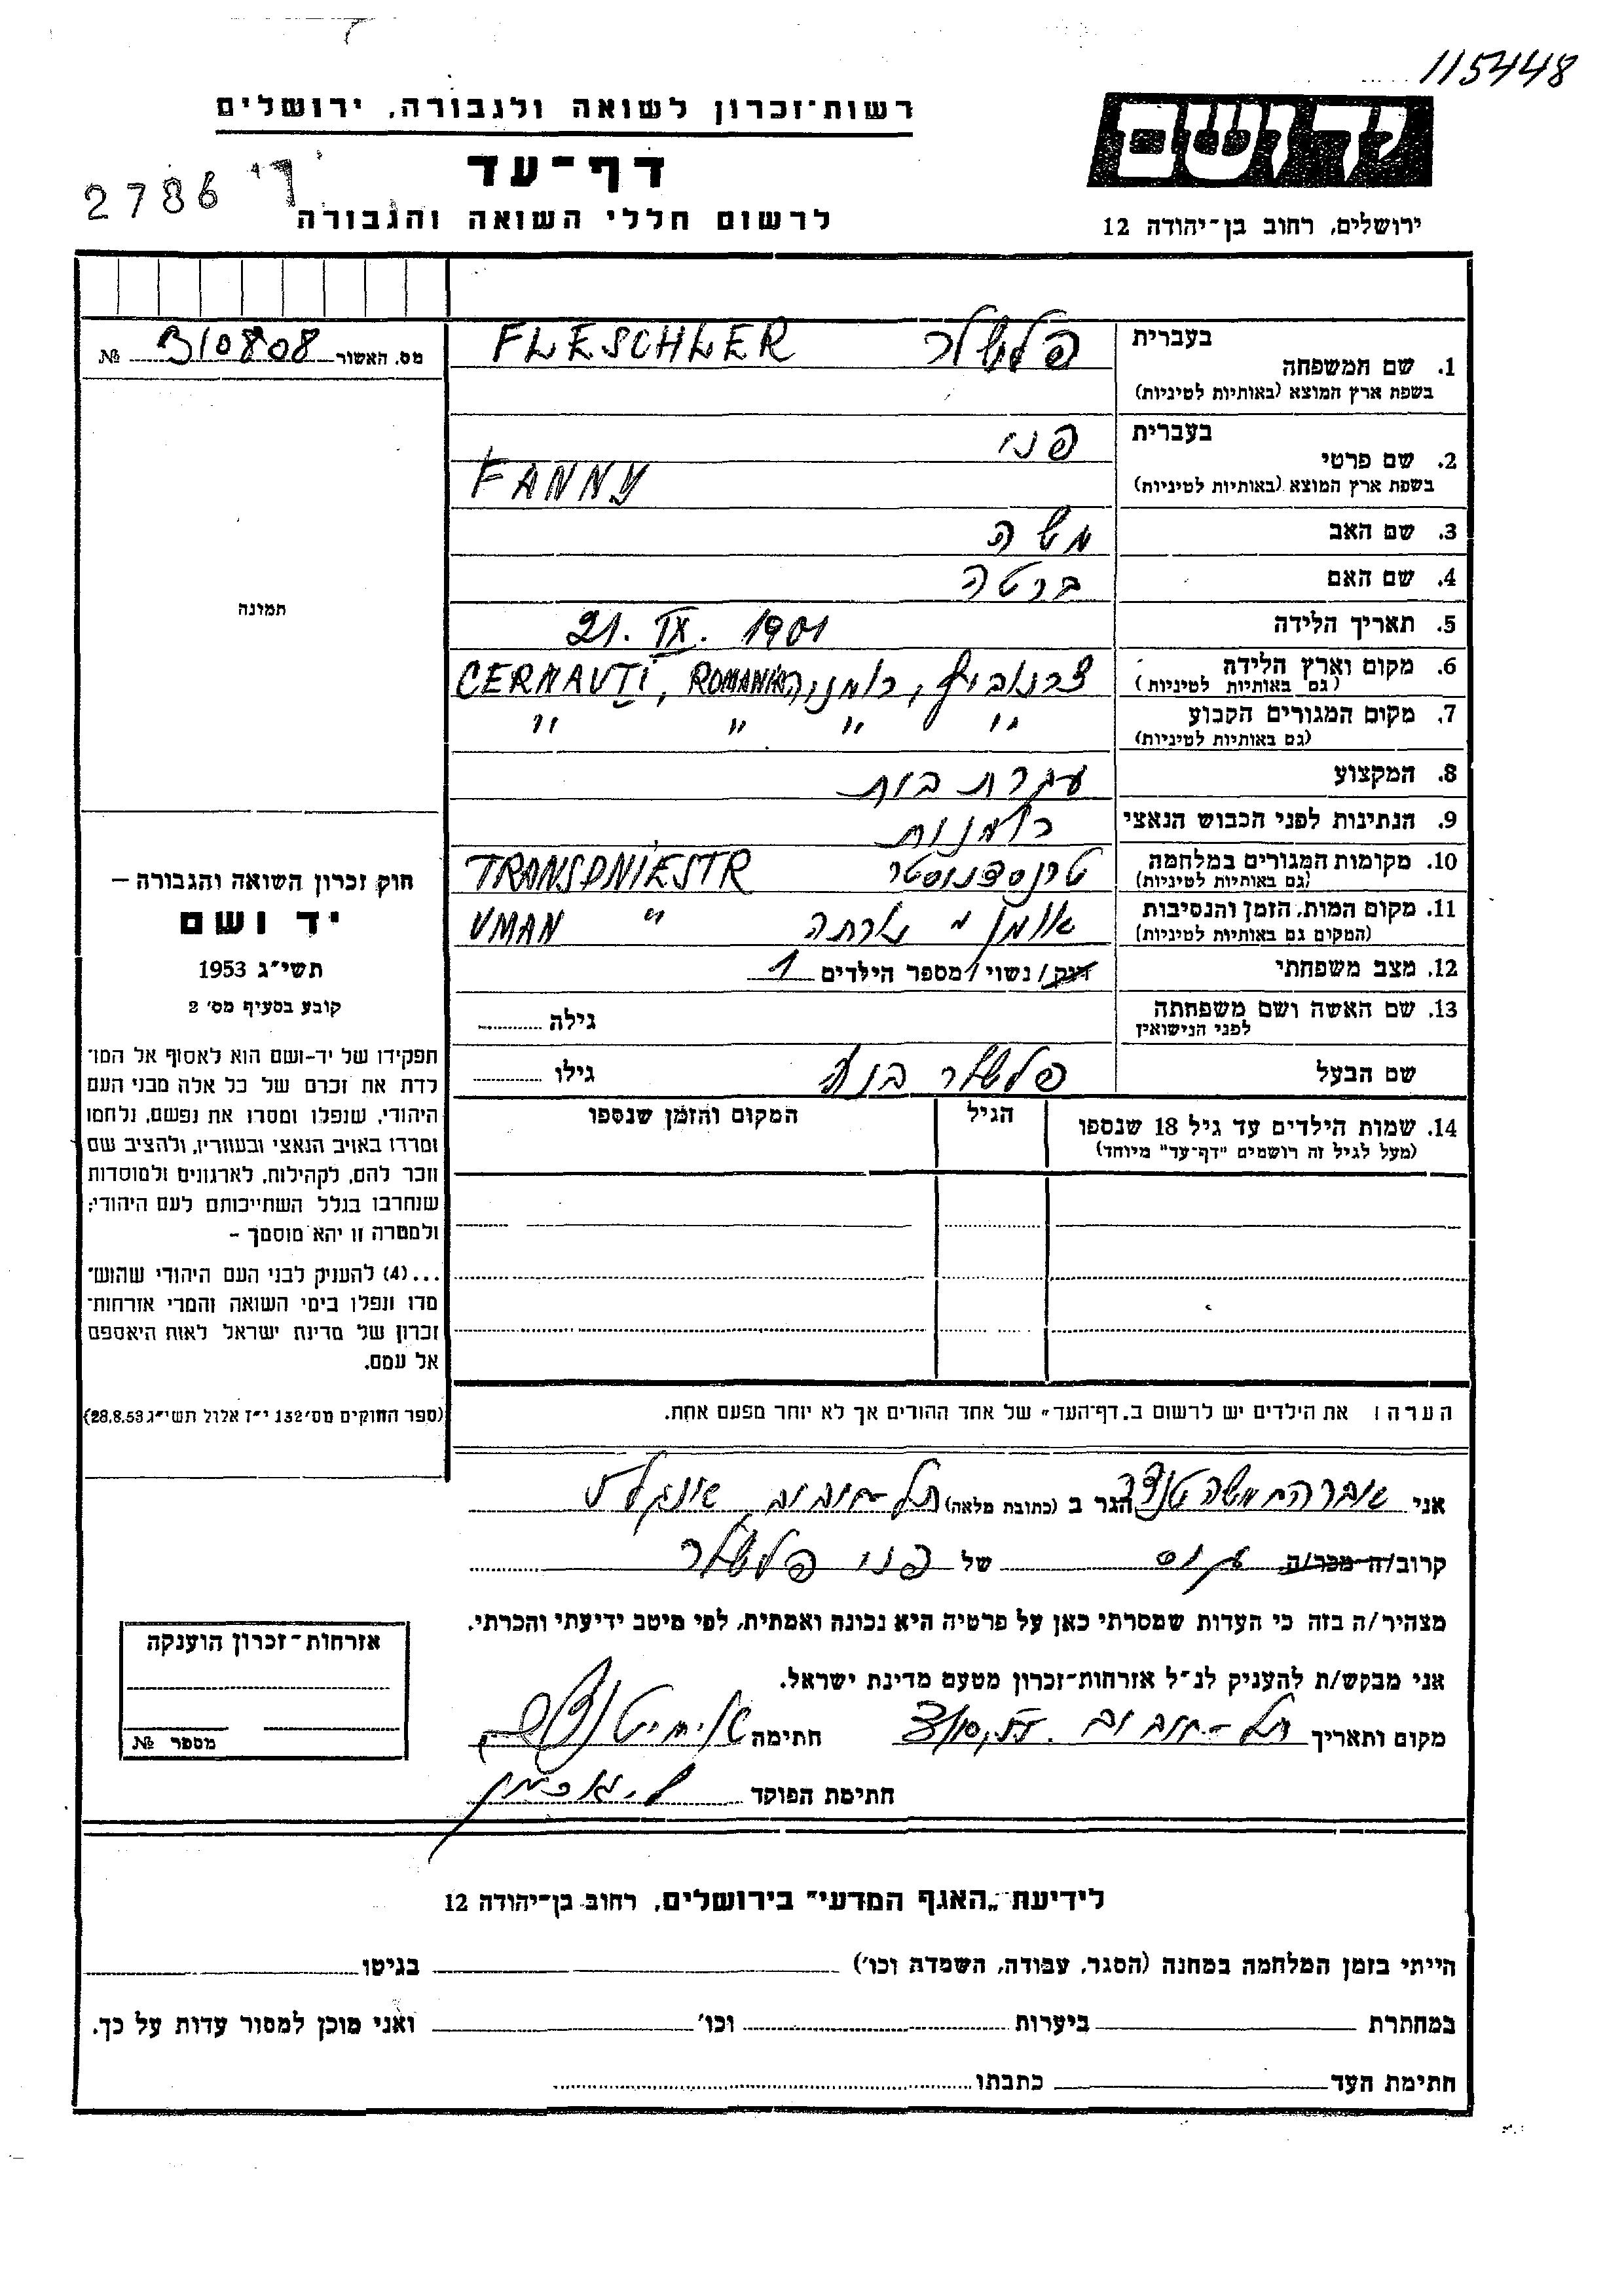 115448
יד ושם
ירושלים, רחוב בן־יהודה 12
רשות־זכרון לשואה ולגבורה, ירושלים
דף־עד
לרשום חללי השואה והגבורה
2786
מס. האשור 310808 №
תמונה
חוק זכרון השואה והגבורה —
יד ושם
תשי״ג 1953
קובע בסעיף מס׳ 2
תפקידו של יד-ושם הוא לאסוף אל המו־
לדת את זכרם של כל אלה מבני העם
היהודי, שנפלו ומסרו את נפשם, נלחמו
ומרדו באויב הנאצי ובעוזריו, ולהציב שם
וזכר להם, לקהילות, לארגונים ולמוסדות
שנחרבו בגלל השתייכותם לעם היהודי;
ולמטרה זו יהא מוסמך –
...(4) להעניק לבני העם היהודי שהוש־
מדו ונפלו בימי השואה והמרי אזרחות־
זכרון של מדינת ישראל לאות היאספם
אל עמם.
(ספר החוקים מס׳ 132 י״ז אלול תשי״ג 28.8.53)
בעברית
1. שם המשפחה פלשלר FLESCHLER
בשפת ארץ המוצא (באותיות לטיניות)
בעברית פני
2. שם פרטי FANNY
בשפת ארץ המוצא (באותיות לטיניות)
3. שם האב משה
4. שם האם ברטה
5. תאריך הלידה 21. IX. 1901
6. מקום וארץ הלידה צרנוביץ, רומניה CERNAUTI, ROMANIA
(גם באותיות לטיניות)
7. מקום המגורים הקבוע " " " "
(גם באותיות לטיניות)
8. המקצוע עקרת בית
9. הנתינות לפני הכבוש הנאצי רומנית
10. מקומות המגורים במלחמה טרנסדניסטר TRANSDNIESTR
(גם באותיות לטיניות)
11. מקום המות, הזמן והנסיבות אומן UMAN "
(המקום גם באותיות לטיניות)
12. מצב משפחתי רוק/נשוי/מספר הילדים 1
13. שם האשה ושם משפחתה גילה
לפני הנישואין
שם הבעל פלשלר גילו
14. שמות הילדים עד גיל 18 שנספו הגיל המקום והזמן שנספו
(מעל לגיל זה רושמים "דף־עד" מיוחד)
הערה: את הילדים יש לרשום ב„דף־העד״ של אחד ההורים אך לא יותר מפעם אחת.
אני אברהם משה הגר ב (כתובת מלאה) תל-אביב
קרוב/ה מכר/ה גיס של פני פלשלר
מצהיר/ה בזה כי העדות שמסרתי כאן על פרטיה היא נכונה ואמתית, לפי מיטב ידיעתי והכרתי.
אני מבקש/ת להעניק לנ״ל אזרחות־זכרון מטעם מדינת ישראל.
מקום ותאריך תל-אביב חתימה
חתימת הפוקד
אזרחות־זכרון הוענקה
מספר №
לידיעת „האגף המדעי״ בירושלים, רחוב בן־יהודה 12
הייתי בזמן המלחמה במחנה (הסגר, עבודה, השמדה וכו׳) בגיטו
במחתרת ביערות וכו׳ ואני מוכן למסור עדות על כך.
חתימת העד כתבתו